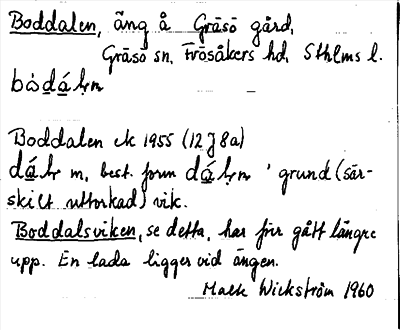 Boddalen, äng å Gräsö gård,
Gräsö sn, Frösåkers hd, Sthlms l.
Boddalen ek 1955 (12 J 8a)
m, best. form ' grund (sär-
skilt uttorkad) vik.
Boddalsviken, se detta, har förr gått längre
upp. En lada ligger vid ängen.
Wickström 1960